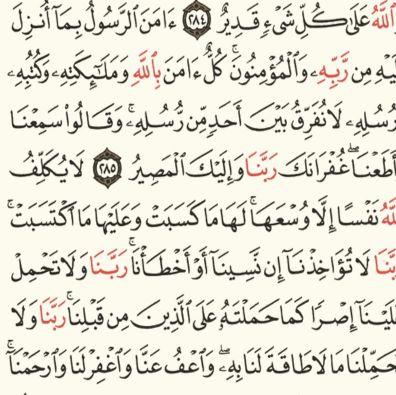 ٱللَّهُ عَلَىٰ كُلِّ شَىْءٍ قَدِيرٌ ٢٨٤ ءَامَنَ ٱلرَّسُولُ بِمَآ أُنزِلَ
لَيْهِ مِن رَّبِّهِۦ وَٱلْمُؤْمِنُونَ ۚ كُلٌّ ءَامَنَ بِٱللَّهِ وَمَلَـٰٓئِكَتِهِۦ وَكُتُبِهِۦ
رُسُلِهِۦ لَا نُفَرِّقُ بَيْنَ أَحَدٍ مِّن رُّسُلِهِۦ ۚ وَقَالُوا۟ سَمِعْنَا
أَطَعْنَا ۖ غُفْرَانَكَ رَبَّنَا وَإِلَيْكَ ٱلْمَصِيرُ ٢٨٥ لَا يُكَلِّفُ
للَّهُ نَفْسًا إِلَّا وُسْعَهَا ۚ لَهَا مَا كَسَبَتْ وَعَلَيْهَا مَا ٱكْتَسَبَتْ ۗ
بَّنَا لَا تُؤَاخِذْنَآ إِن نَّسِينَآ أَوْ أَخْطَأْنَا ۚ رَبَّنَا وَلَا تَحْمِلْ
لَيْنَآ إِصْرًا كَمَا حَمَلْتَهُۥ عَلَى ٱلَّذِينَ مِن قَبْلِنَا ۚ رَبَّنَا وَلَا
حَمِّلْنَا مَا لَا طَاقَةَ لَنَا بِهِۦ ۖ وَٱعْفُ عَنَّا وَٱغْفِرْ لَنَا وَٱرْحَمْنَآ ۚ